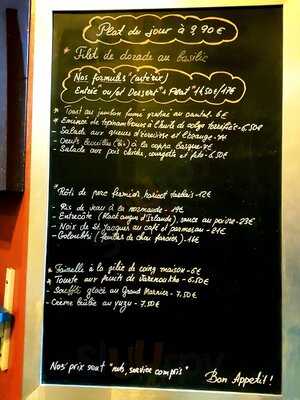 Plat du jour à 9,90 €
* Filet de dorade au basilic
Nos formules (ard/prix)
Entrée ou/et Dessert + Plat 14,50€/17€
* Toast au jambon fumé gratiné au cantal. 6€
* Emincé de topinambours à l'huile de colza torréfiée - 6,50€
- Salade aux queues d'écrevisse et l'orange - 7€
- Oeufs brouillés (bio) à la coppa Basque - 7€
- Salade aux pois chiches, courgette et feta - 6,50€
* Rôti de porc fermier, haricot tarbais - 12€
- Ris de veau à la normande - 19€
- Entrecôte (Black angus d'Irlande), sauce au poivre - 23€
- Noix de St Jacques au café et parmesan - 21€
- Goloubtsi (feuilles de chou farcies) - 16€
* Faisselle à la gelée de coing maison - 6€
* Tourte aux fruits de - 6,50€
- Soufflé glacé au Grand Marnier - 7,50€
- Crème brûlée au yuzu - 7,50€
Nos prix sont "nets, service compris"
Bon Appetit!